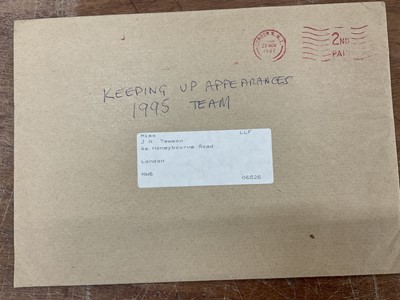 LONDON N.W.1
22 NOV
2ND
PAI
KEEPING UP APPEARANCES
1995 TEAM
Miss LLF
J H Tewson
6a Honeybourne Road
London
NW6 06826